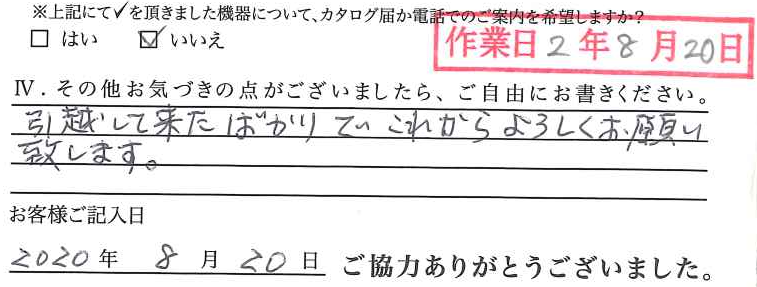 ※上記にて✓を頂きました機器について、カタログ届か電話でのご案内を希望しますか?
□ はい ☑ いいえ
作業日 2 年 8 月 20 日
Ⅳ．その他お気づきの点がございましたら、ご自由にお書きください。
引越して来たばかりでいこれからよろしくお願い
致します。
お客様ご記入日
2020 年 8 月 20 日 ご協力ありがとうございました。